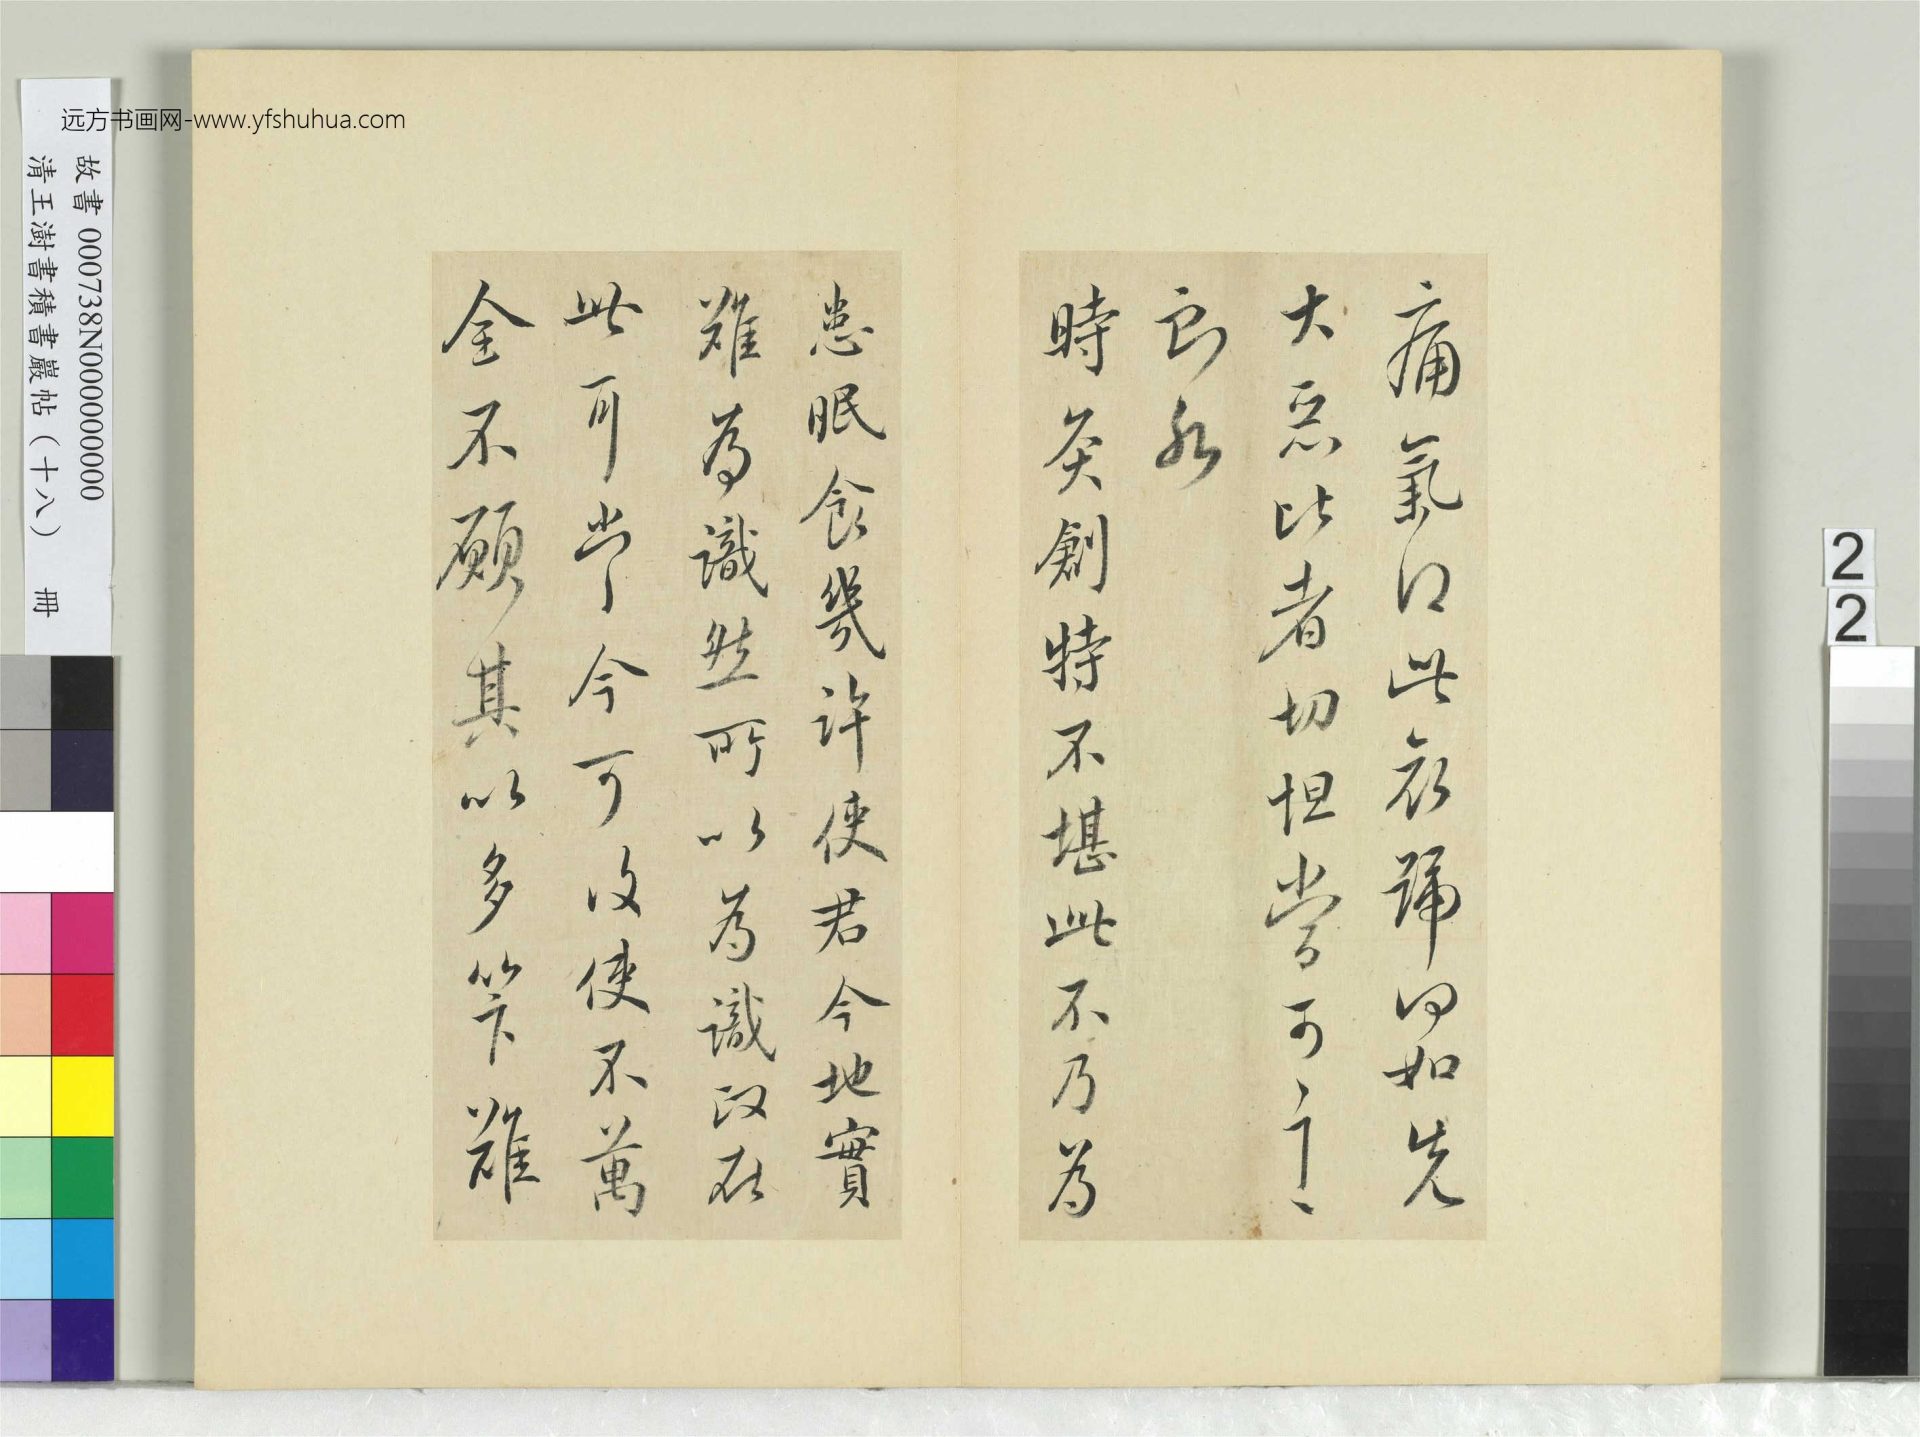 远方书画网-www.yfshuhua.com
故書 000738N000000000
清王澍書積書巖帖（十八） 冊
痛氣此如先
大惡比者切怛當可言
時灸創特不堪此不乃為
患眠食幾許使君今地實
難為識然所以為識政在
此耳當今可復使不萬
全不願其以多筭難
2
2